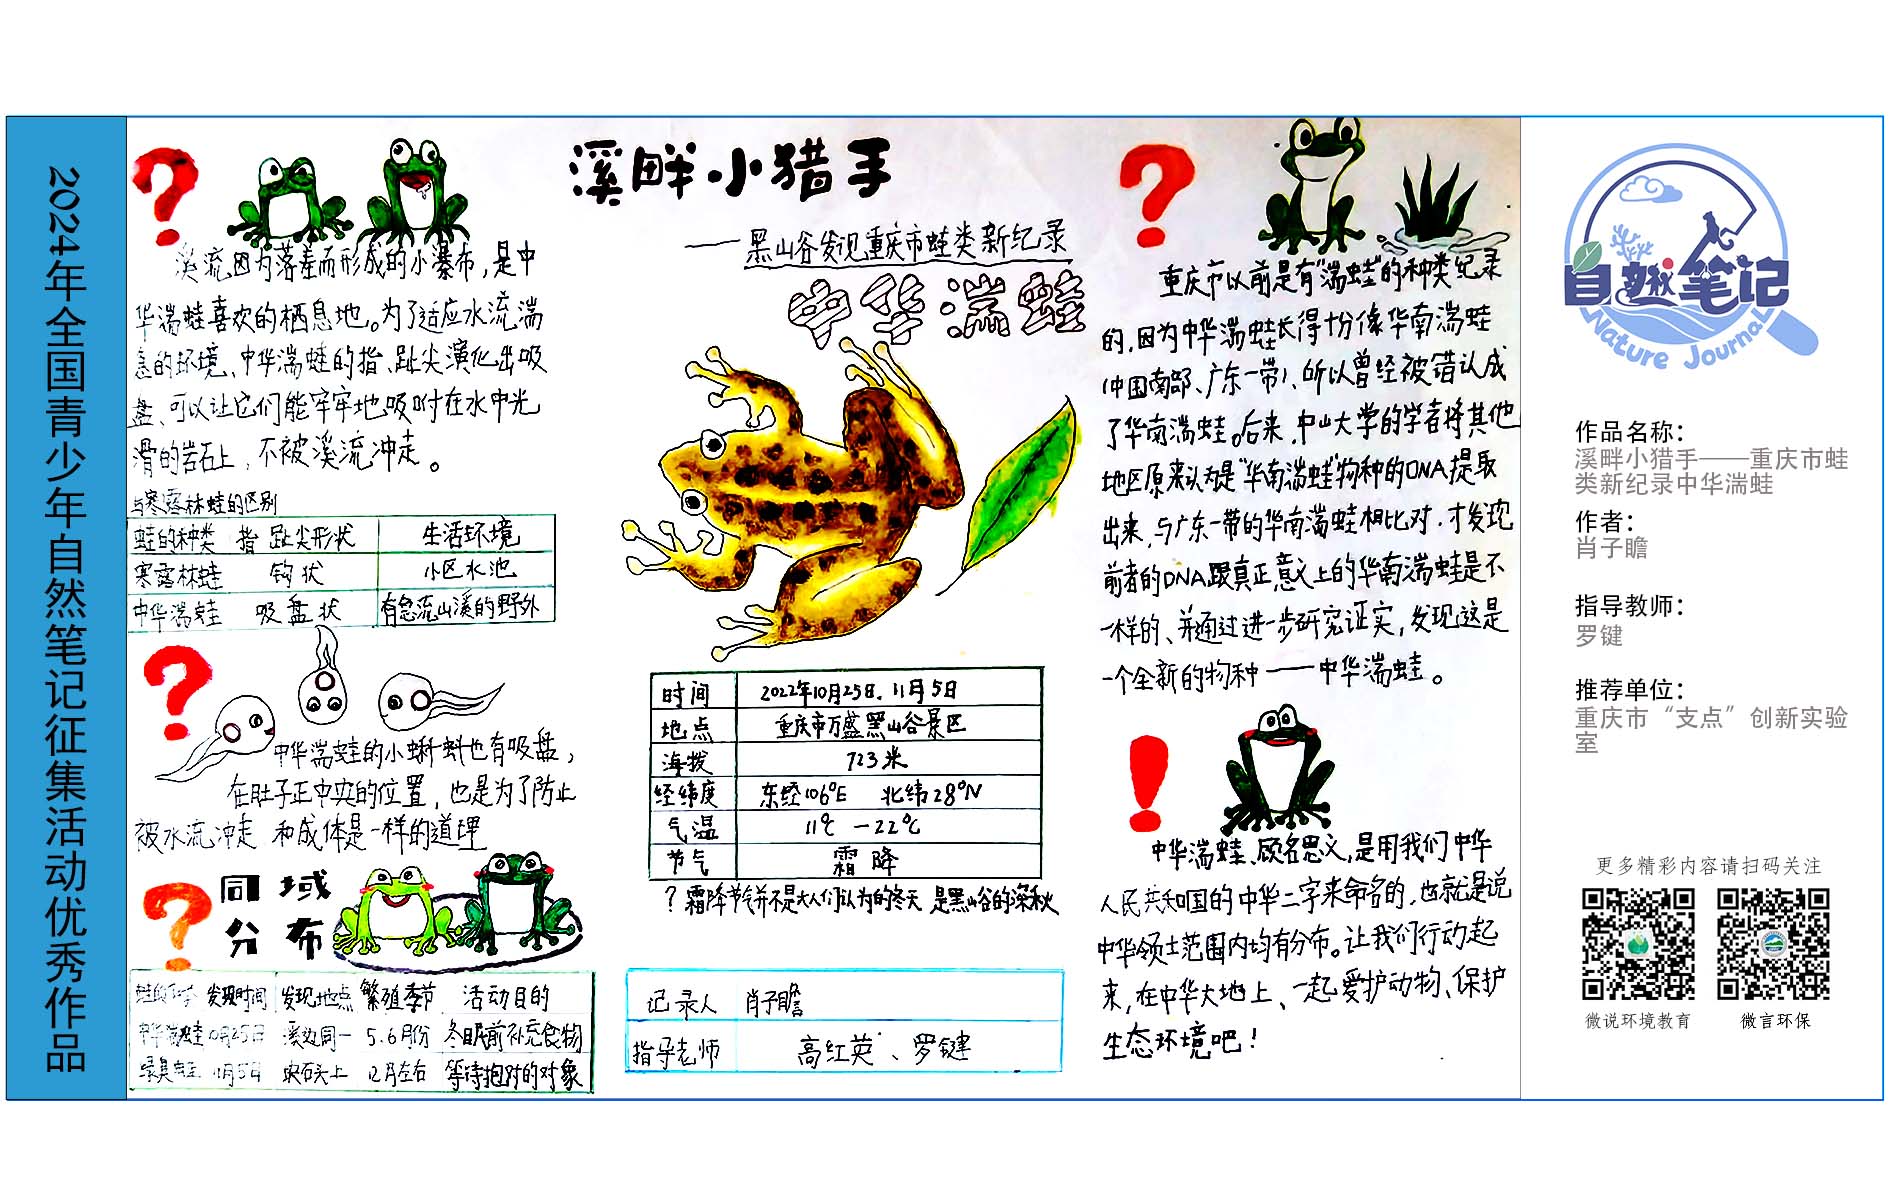 2024年全国青少年自然笔记征集活动优秀作品
溪畔小猎手
——黑山谷发现重庆市蛙类新纪录
中华湍蛙
?
溪流因为落差而形成的小瀑布,是中
华湍蛙喜欢的栖息地。为了适应水流湍
急的环境、中华湍蛙的指、趾尖演化出吸
盘、可以让它们能牢牢地吸附在水中光
滑的岩石上,不被溪流冲走。
与寒露林蛙的区别
蛙的种类 指 趾尖形状 生活环境
寒露林蛙 钩状 小区水池
中华湍蛙 吸盘状 有急流山溪的野外
?
中华湍蛙的小蝌蚪也有吸盘,
在肚子正中央的位置,也是为了防止
被水流冲走 和成体是一样的道理
?
同域
分布
发现时间 发现地点 繁殖季节 活动目的
中华湍蛙 10月25日 溪边同一 5.6月份 冬眠前补充食物
11月5日 12月左右 等待抱对的对象
时间 2022年10月25日.11月5日
地点 重庆市万盛黑山谷景区
海拨 723米
经纬度 东经106°E 北纬28°N
气温 11℃—22℃
节气 霜降
?霜降节气并不是大人们认为的冬天 是黑山谷的深秋
记录人 肖子瞻
指导老师 高红英、罗键
?
重庆市以前是有“湍蛙”的种类纪录
的,因为中华湍蛙长得十分像华南湍蛙
(中国南部、广东一带)、所以曾经被错认成
了华南湍蛙。后来,中山大学的学者将其他
地区原来认为是“华南湍蛙”物种的DNA提取
出来,与广东一带的华南湍蛙相比对.才发现
前者的DNA跟真正意义上的华南湍蛙是不
一样的、并通过进一步研究证实,发现这是
一个全新的物种——中华湍蛙。
!
中华湍蛙、顾名思义,是用我们中华
人民共和国的中华二字来命名的,也就是说
中华领土范围内均有分布。让我们行动起
来,在中华大地上、一起爱护动物、保护
生态环境吧!
自然笔记
Nature Journal
作品名称：
溪畔小猎手——重庆市蛙
类新纪录中华湍蛙
作者：
肖子瞻
指导教师：
罗键
推荐单位：
重庆市“支点”创新实验
室
更多精彩内容请扫码关注
微说环境教育
微言环保